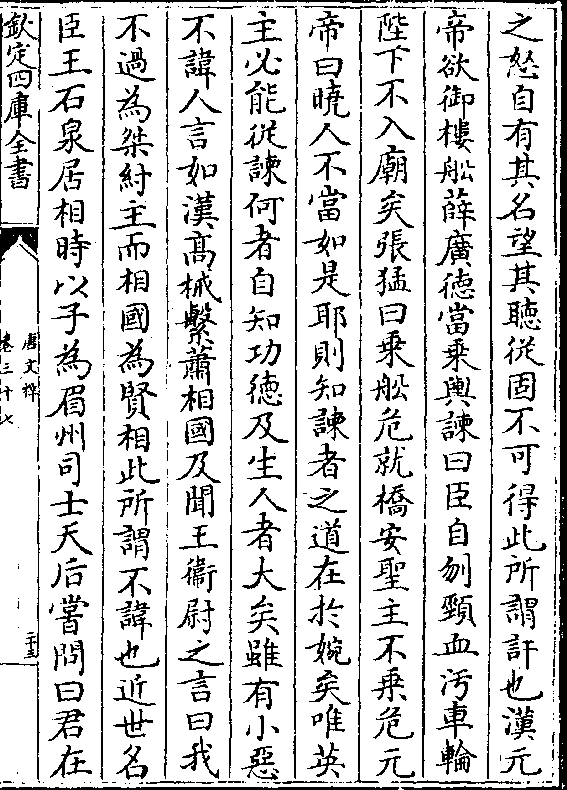 之怒自有其名望其聽從固不可得此所謂訐也漢元
帝欲御樓船薛廣德當乗輿諫曰臣自刎頸血汚車輪
陛下不入廟矣張猛曰乗船危就橋安聖主不乗危元
帝曰曉人不當如是耶則知諫者之道在於婉矣唯英
主必能從諫何者自知功德及生人者大矣雖有小惡
不諱人言如漢髙械繫蕭相國及聞王衞尉之言曰我
不過為桀紂主而相國為賢相此所謂不諱也近世名
臣王石泉居相時以子為眉州司士天后嘗問曰君在
欽定四庫全書
唐文粹
卷三十七
二十三